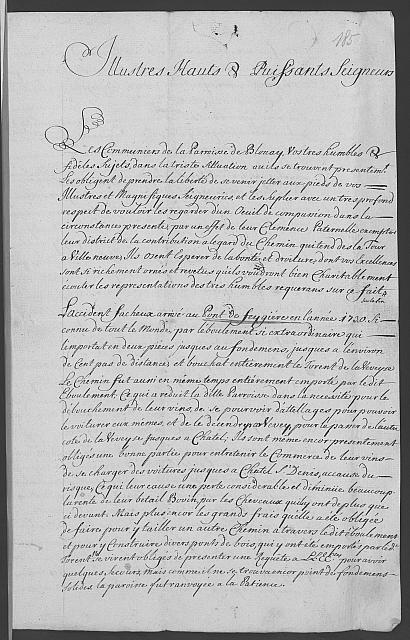 185
Illustres Hauts & Puissants Seigneurs
Les Communiers de la Parroisse de Blonay, Vostres humbles &
fideles Sujets, dans la triste situation ou ils se trouvent presentemt.
Les obligent de prendre la liberté de se venir jetter aux pieds de vos
Illustres et Magnifiques Seigneuries, et les suplier avec un tres profond
respect de vouloir les regarder d'un Oeuil de compassion dans la
circonstance presente, par un effet de leur Clemence Paternelle exempter
leur district de la contribution a legard du Chemin qui tend de la Tour
a Villeneuve, Ils osent esperer de la bonté et droiture, dont vos Excellences
sont si richement ornés et revetus qu'ils voudront bien Charitablement
ecouter les representations des tres humbles requerans sur ce fait,
L'accident facheux arrivé au Pont de feygiere en l'année 1730. si
connu de tout le Monde, par leboulement si extraordinaire qui
l'emportat en deux pieces jusques au fondemens, jusques a lenviron
de Cent pas de distance et bouchat entierement le Torent de la Veveyse
Le Chemin fut aussi en même temps entierement emporté par le dit
eboulement. Ce qui a reduit la ditte Parroisse dans la necessité pour le
debouchement de leur vins, de se pourvoir d'attellages pour pouvoir
le voiturer eux mêmes, et de descendre par Vevey, pour la passer de l'autre
coté de la Vevey se jusques a Chatel, Ils sont même encor presentement
obligés une bonne partie, pour entretenir le Commerce de leur vins
de se charger des voitures jusques a Chatel St. Denis, a cause du
risque, Ce qui leur cause une perte considerable et diminue beaucoup
la rente de leur betail Bovin, par les Chevaux quils y ont de plus que
ci devant. Mais plus encor les grands frais qu'elle a eté obligée
de faire pour y tailler un autre Chemin a travers le dit eboulement
et pour y Construire divers ponts de bois, qui y ont eté emportés par le dt.
Torent, Ils se virent obligés de presenter une Requete a LL. EEces. pour avoir
quelques secours, mais comme il ne se trouva encor point de fondemens
solides la paroisse fut renvoyée a la Patience.